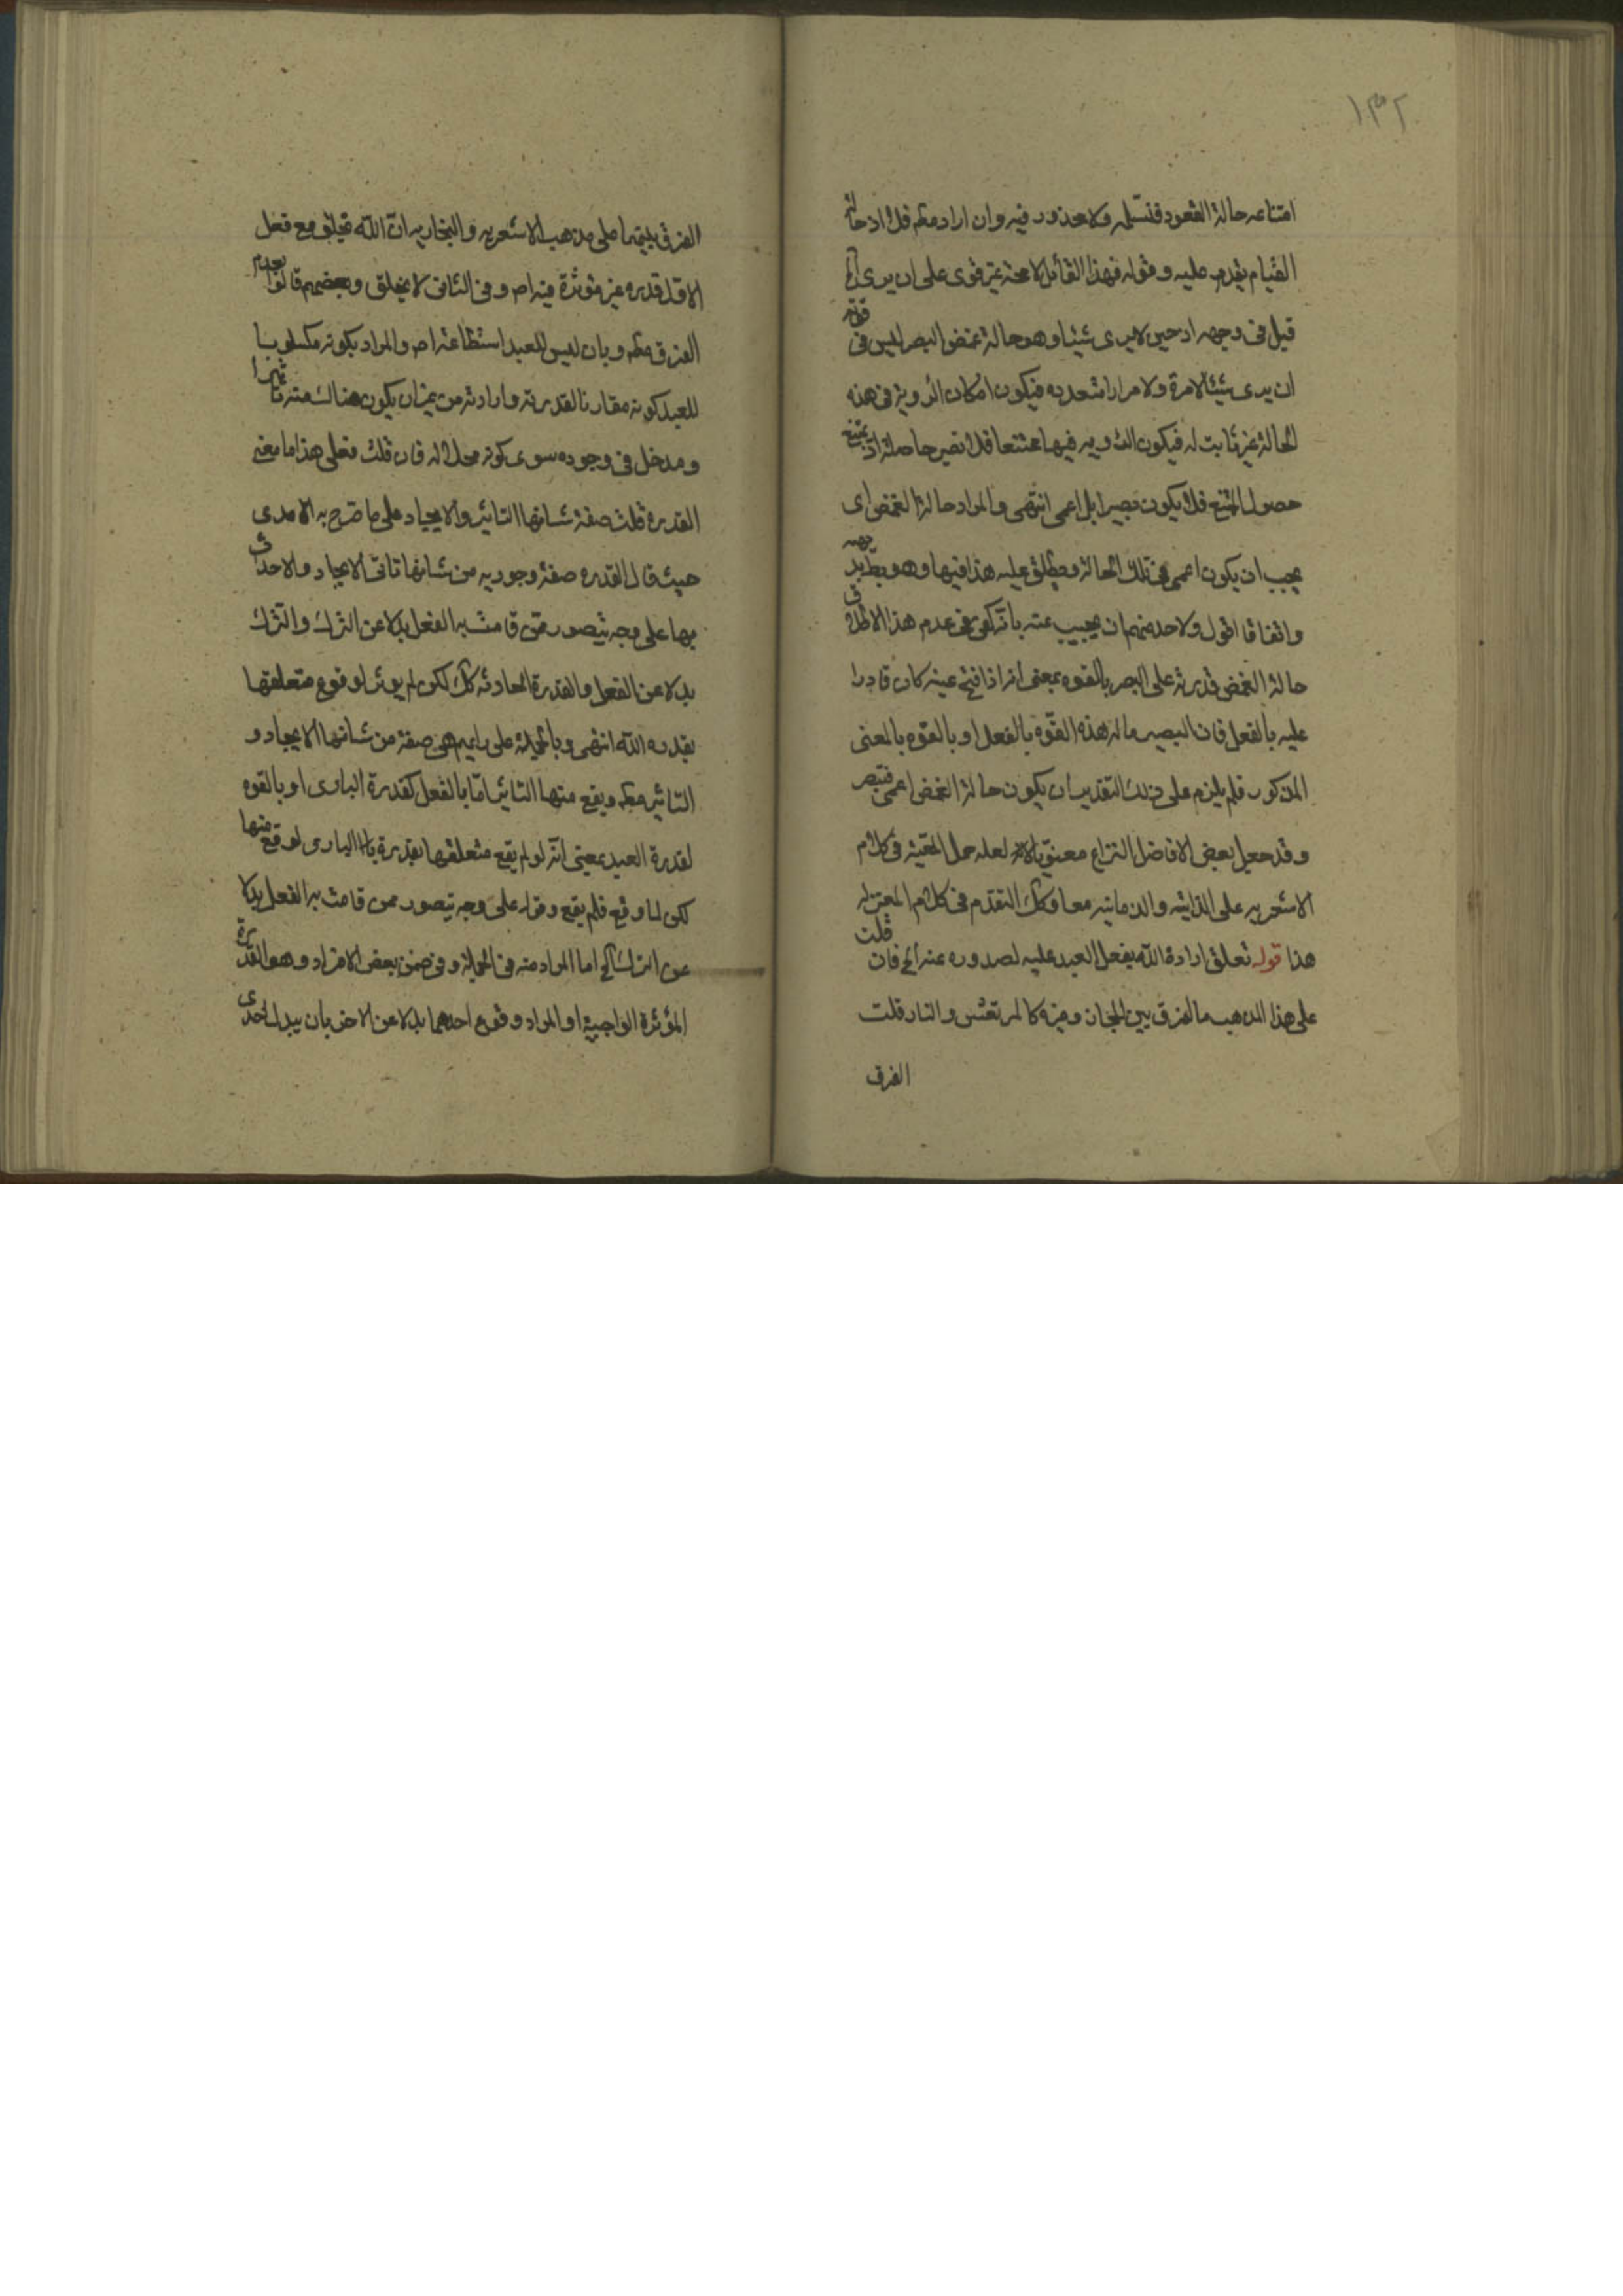 ١٣٢
امتناعه حالة القعود فنسلمه ولا محذور فيه وان اراد مطم فلا اذ حالة
القيام يقدر عليه وقوله فهذا القائل لا محة غير قوى على ان يرى الخ
قيل فى وجهه اذ حين لا يرى شيئا وهو حالة غمض البصر ليس فى قوته
ان يرى شيئا لا مرة ولا مرارا متعدده فيكون امكان الروية فى هذه
الحالة غير ثابت له فيكون الروية فيها ممتنعا فلا تصير حاصلة اذ يمتنع
حصول الممتنع فلا يكون بصيرا بل اعمى انتهى والمراد حالة الغمض اى
يجب ان يكون اعمى فى تلك الحالة ويطلق عليه هذا فيها وهو بط بديهه
واتفاقا اقول ولاحد منهم ان يجيب عنه بانه كفى فى عدم هذا الاطلاق
حالة الغمض قدرته على البصر بالقوه بمعنى انه اذا فتح عينه كان قادرا
عليه بالفعل فان البصير ماله هذه القوه بالفعل او بالقوه بالمعنى
المذكور فلم يلزم على ذلك التقدير ان يكون حالة الغمض اعمى فتبصر
وقد جعل بعض الافاضل النزاع معنويا لعله حمل المعية فى كلام
الاشعريه على الذاتيه والزمانيه معا وكك التقدم فى كلام المعتزله
هذا قوله تعلق ارادة الله بفعل العبد عليه لصدوره عنه الخ فان قلت
على هذا المذهب ما الفرق بين المختار وغيره كالمرتعش والنار قلت
الفرق
الفرق بينهما على مذهب الاشعريه والنجاريه ان الله يخلق مع فعل
الاول قدره غير مؤثرة فيه اص وفى الثانى لا يخلق وبعضهم قالوا بعدم
الفرق مطم وبان ليس للعبد استطاعة اص والمراد بكونه مكسوبا
للعبد كونه مقارنا لقدرته وارادته من غير ان يكون هناك منه تاثيرا
ومدخل فى وجوده سوى كونه محلا له فان قلت فعلى هذا ما معنى
القدرة قلت صفة شانها التاثير والايجاد على ما صرح به الامدى
حيث قال القدره صفة وجوديه من شانها تاتى الايجاد والاحداث
بها على وجه يتصور ممن قامت به الفعل بدلا عن الترك والترك
بدلا عن الفعل والقدرة الحادثه كك لكن لم يوثر لوقوع متعلقها
بقدره الله انتهى وبالجملة على رايهم هى صفة من شانها الايجاد و
التاثير مطم ويقع منها التاثير امّا بالفعل كقدرة البارى او بالقوه
لقدرة العبد بمعنى انه لو لم يقع متعلقها بقدرة البارى لوقع منها
لكن لما وقع فلم يقع وقوله على وجه يتصور ممن قامت به الفعل بدلا
عن الترك الخ اما المراد منه فى الجملة وفى ضمن بعض الافراد وهو القدرة
المؤثرة الواجبية او المراد وقوع احدهما بدلا عن الاخر بان يبدل احدى